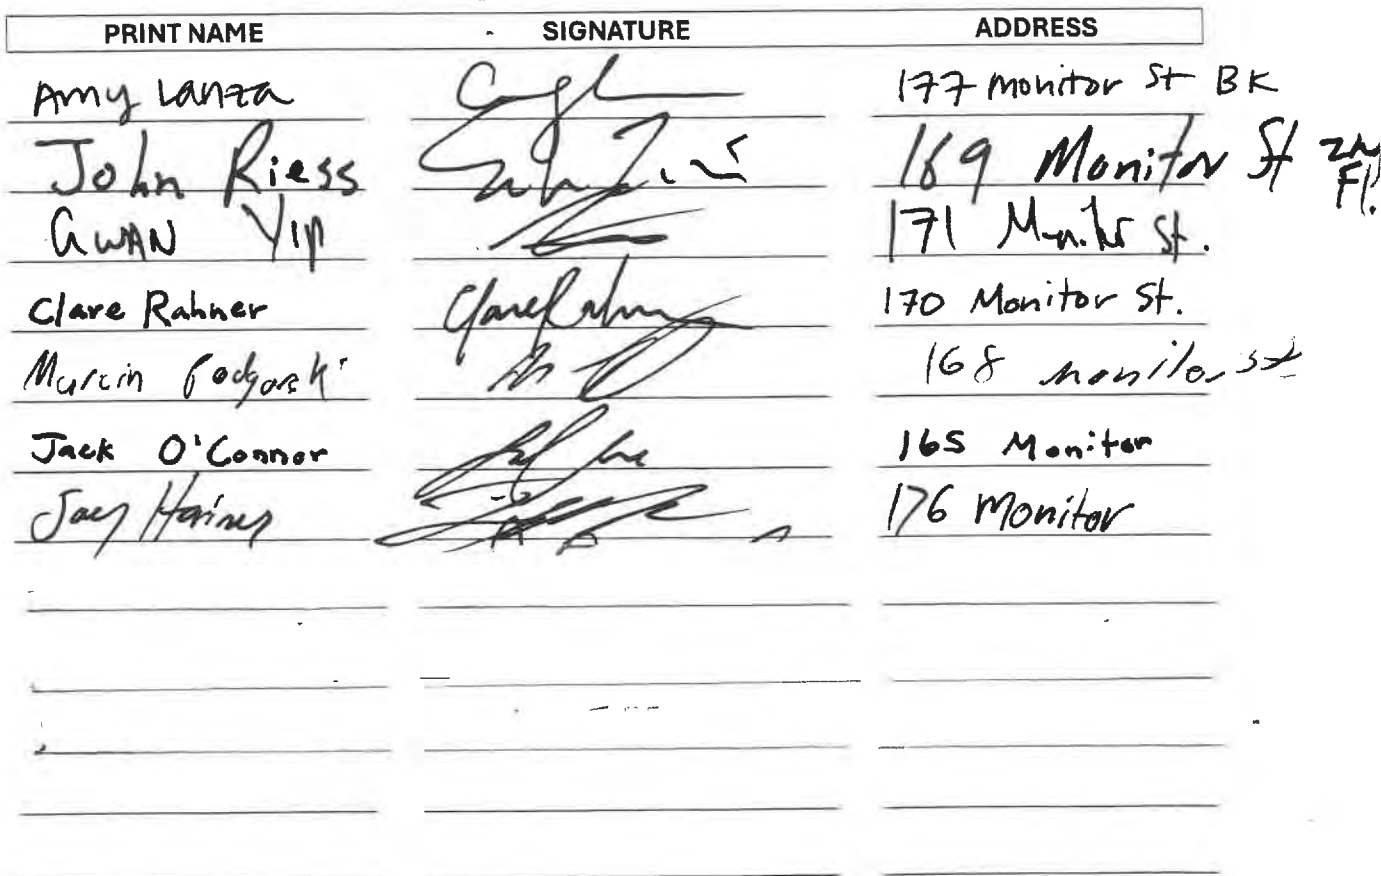 PRINT NAME SIGNATURE ADDRESS
Amy Lanza 177 Monitor St BK
John Riess 169 Monitor St 2nd Fl.
GWAN YIP 171 Monitor St.
Clare Rahner Clare Rahner 170 Monitor St.
Marcin 168 monitor st
Jack O'Connor 165 Monitor
176 Monitor